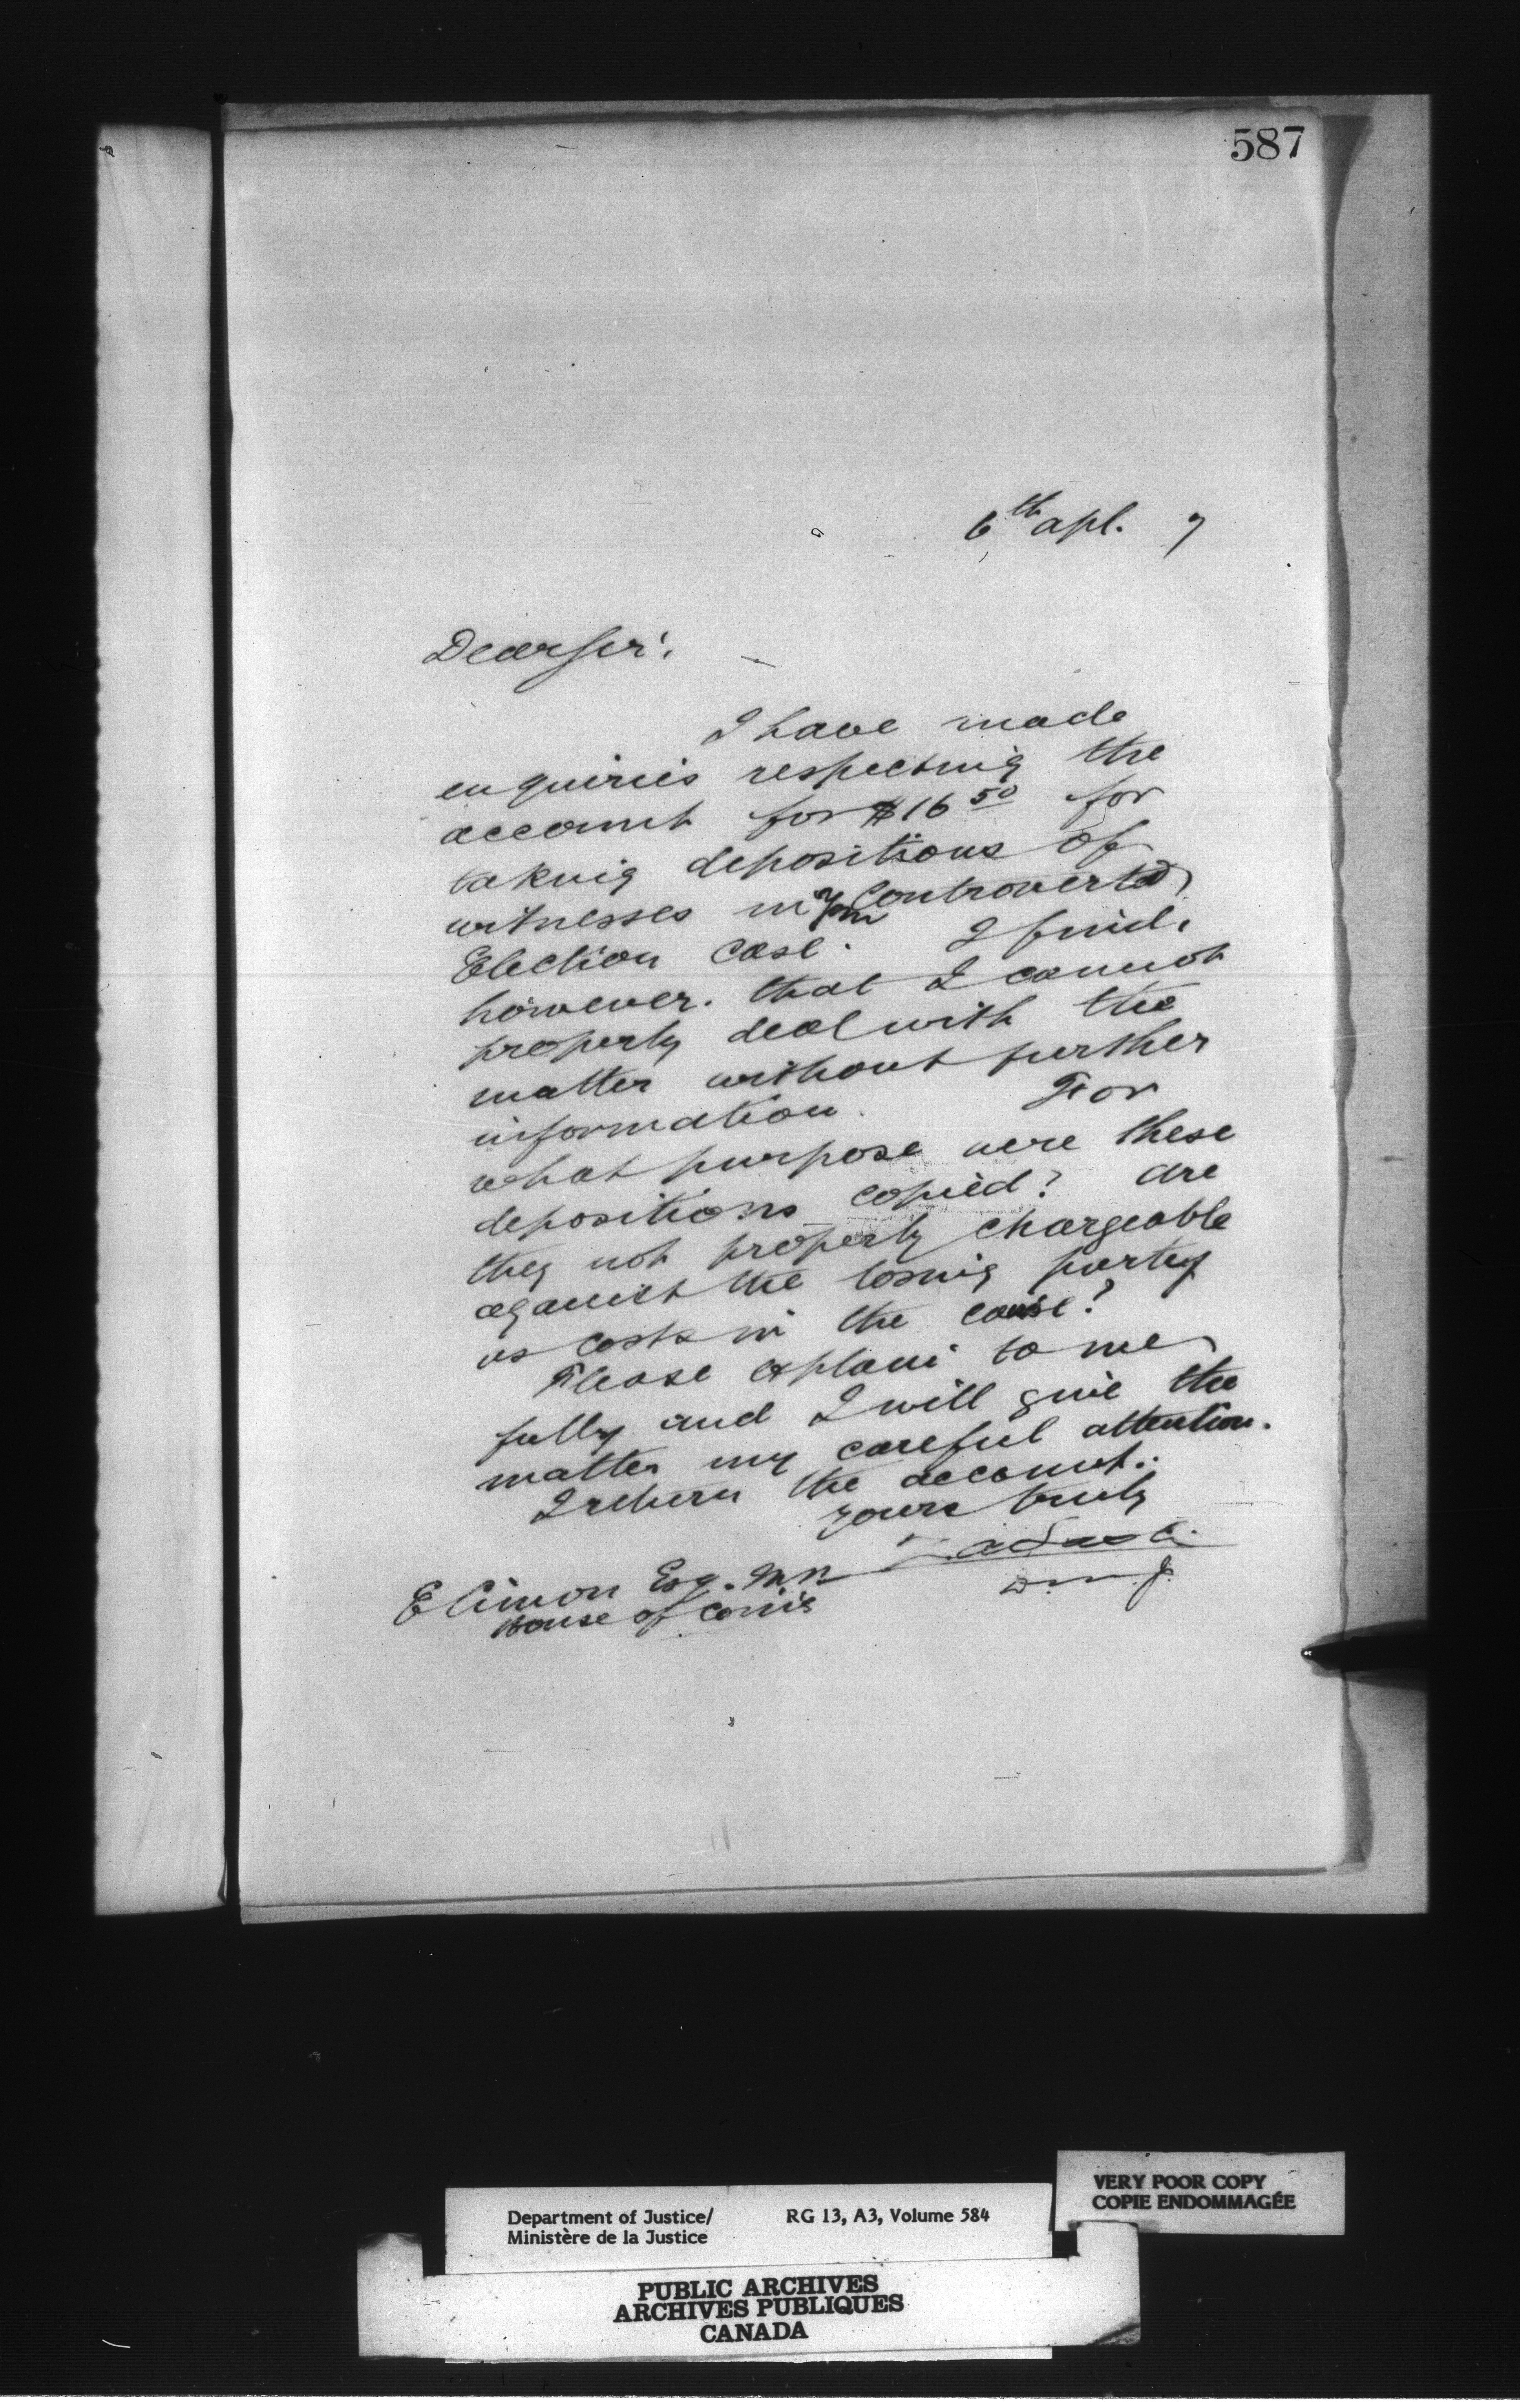 587
6th apl. 7
Dear Sir,
I have made
enquiries respecting the
account for $16 50 for
taking depositions of
witnesses in Controverted
Election Case. I find,
however, that I cannot
properly deal with the
matter without further
information. For
what purpose were these
depositions copied? are
they not properly chargeable
against the losing party
as costs in the cause?
Please explain to me
fully and I will give the
matter my careful attention.
I return the account.
yours truly
E Cimon Esq. MP
House of Com's
D. M. J.
Department of Justice/ RG 13, A3, Volume 584
Ministère de la Justice
VERY POOR COPY
COPIE ENDOMMAGÉE
PUBLIC ARCHIVES
ARCHIVES PUBLIQUES
CANADA